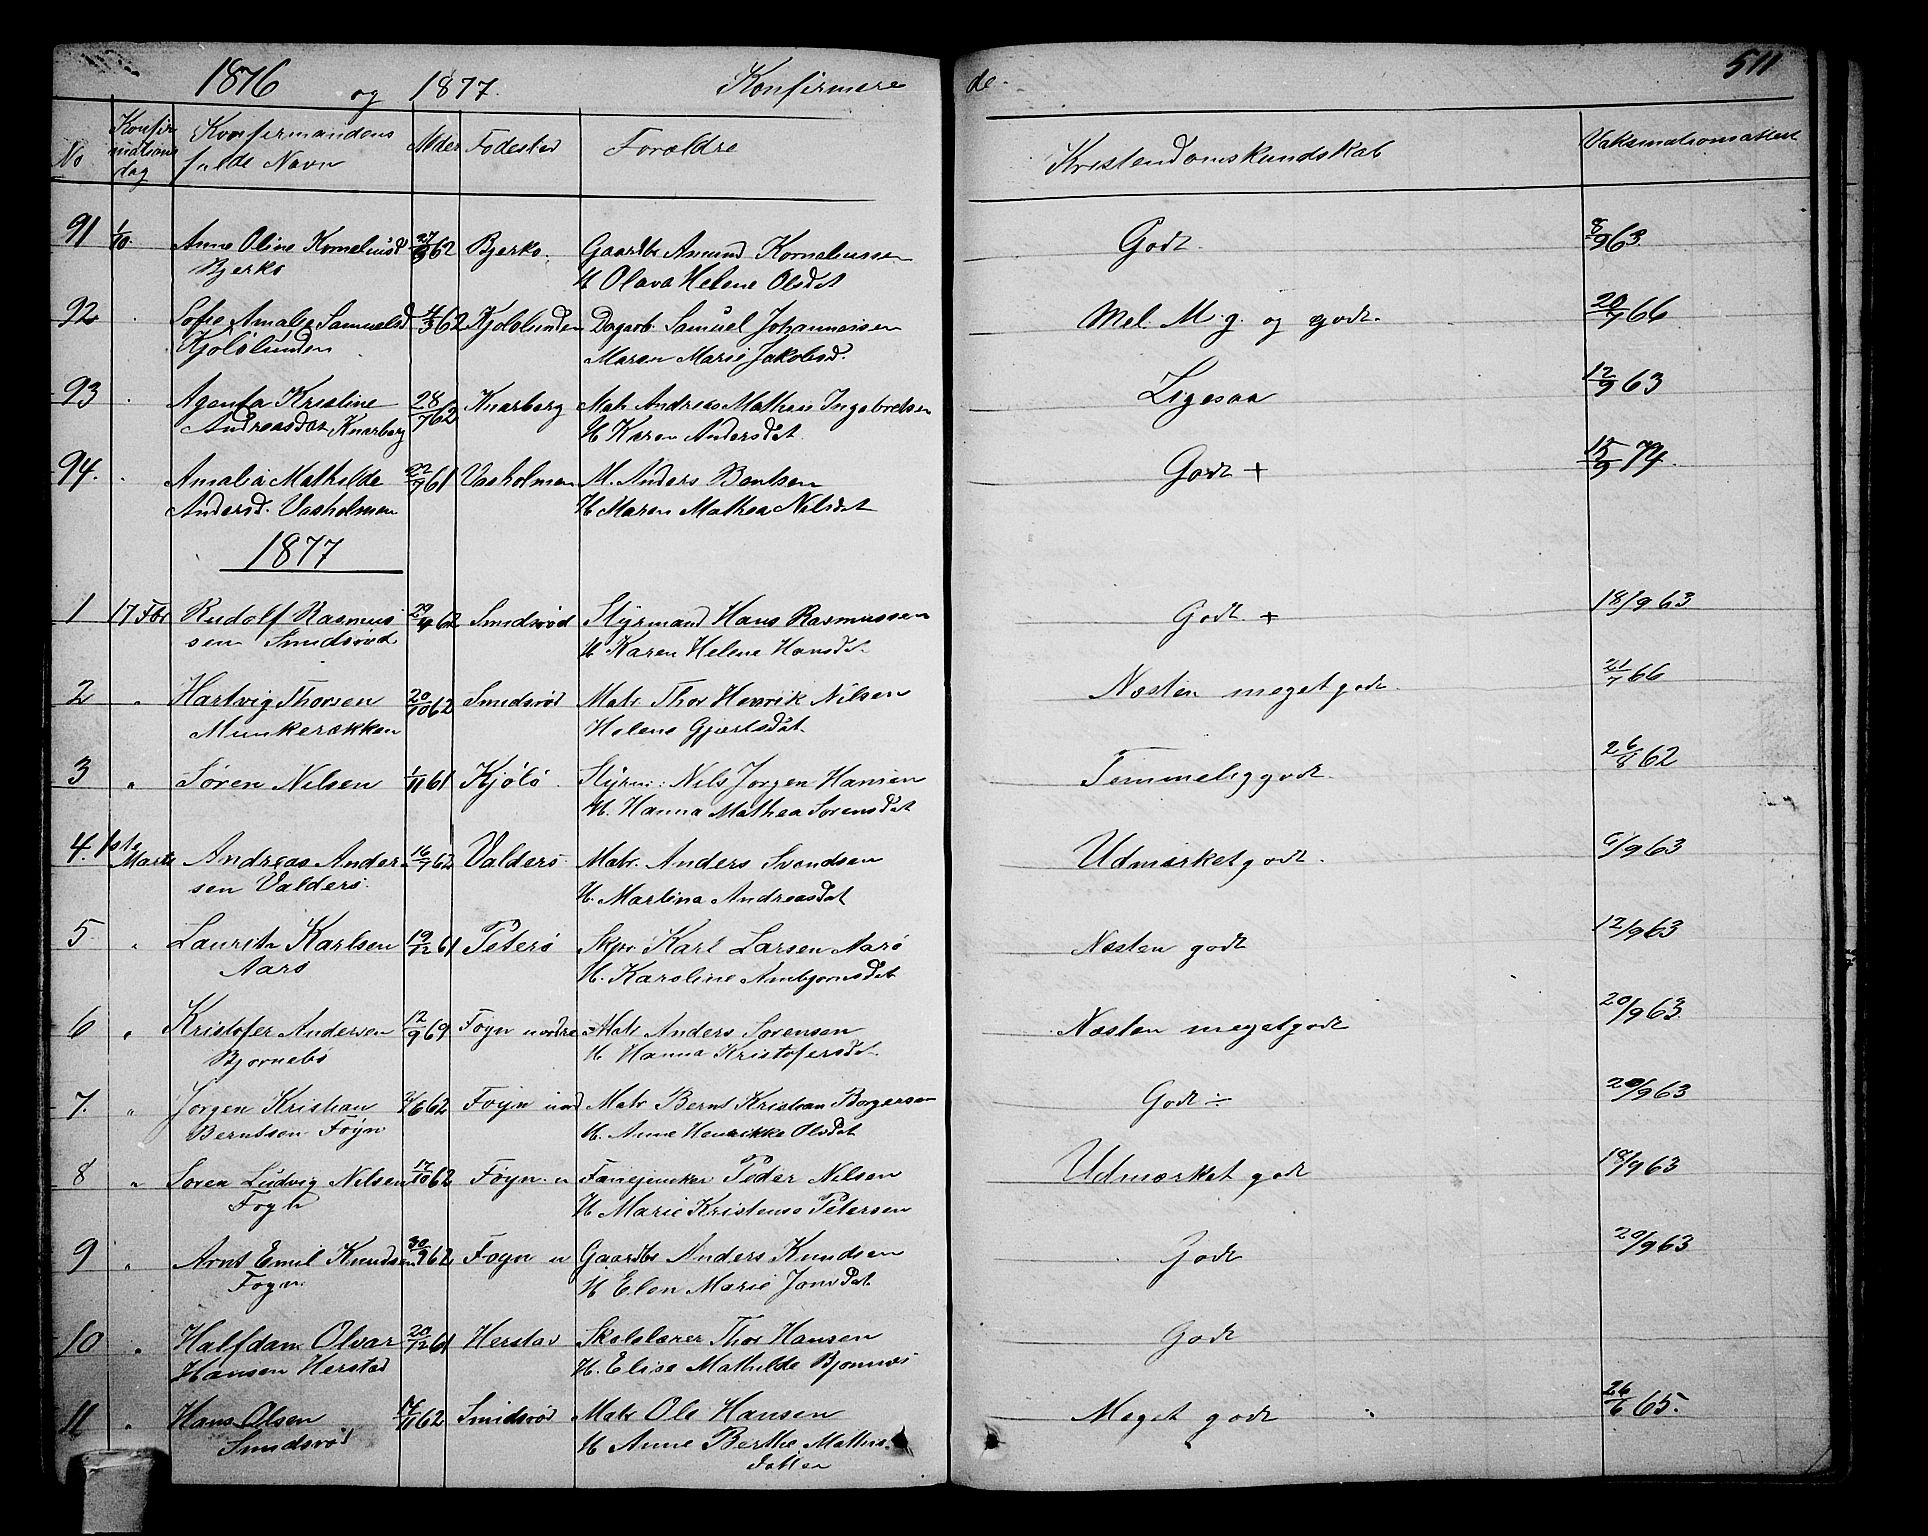 1876 og 1877. Konfirmere de. 511
No Konfirmations dag Konfirmandens fulde Navn Alder Fødested Forældre Kristendomskundskab Vaksinationsattest
91 1/10. Anne Oline Korneliusd 27/9 62 Bjerkø. Gaardbr Amund Korneliussen Godt. 8/9 63
Bjerkø H Olava Helene Olsdat
92 . Sofie Amalie Samuelsd 4/3 62 Kjølslunden Dagarb. Samuel Johannessen Mel. M. g. og godt. 20/7 66
Kjølslunden Maren Marie Jakobsd.
93 . Agenta Kristine 28/7 62 Knarberg Matr Andreas Mathias Ingebretsen Ligesaa 12/9 63
Andreasdat Knarberg H Karen Andersdat.
94. . Amalia Mathilde 22/9 61 Vasholmen M. Anders Bentsen Godt + 15/9 74.
Andersd. Vasholmen H Maren Mathea Nilsdat
1877
1 17 Fbr Rudolf Rasmus 29/4 62 Smidsrød Styrmand Hans Rasmussen Godt + 18/9 63
sen Smidsrød H Karen Helene Hansdat.
2 " Hartvig Thorsen 20/10 62 Smidsrød Matr Thor Henrik Nilsen Næsten meget godt. 21/7 66
Munkerækken Helene Gjertsdat.
3 " Søren Nilsen 1/11 61 KjøLø Styrm: Nils Jørgen Hansen Temmelig godt. 26/8 62
H. Hanna Mathea Sørensdat
4. 1ste Marts Andreas Ander 16/7 62 Valders Matr. Anders Svendsen Udmærket godt. 6/9 63
sen Valders. H. Martina Andreasdat
5 " Laurits Karlsen 19/12 61 Peterø Skpr Karl Larsen Aarø Næsten godt 12/9 63
Aarø H. Karoline Arnbjørnsdat
6 " Kristofer Andersen 12/9 69 Føyn nordre Matr Anders Sørensen Næsten meget godt 20/9 63
Bjørnebo H Hanna Kristofersdat.
7. " Jørgen Kristian 2/6 62 Føyn nord Matr Bernt Kristian Borgersen Godt ÷ 20/9 63
Berntsen Føyn H. Anne Henrikke Olsdat
8 " Søren Ludvig Nilsen 17/10 62 Føyn n Fanejunker Peder Nilsen Udmærket godt 18/9 63
Føyn H Marie Kristense Petersen
9 " Arnt Emil Knudsen 30/9 62 Føyn n Gaardbr Anders Knudsen Godt 20/9 63
Føyn. H Elen Marie Jansdat
10 " Halfdan Olvar 20/12 61 Herstad Skolelærer Thor Hansen Godt
Hansen Herstad H. Elise Mathilde Bjønnes
11 " Hans Olsen 14/11 62 Smidsrød Matr Ole Hansen Meget godt 26/6 65.
Smidsrød H Anne Berthe Mathis
datter